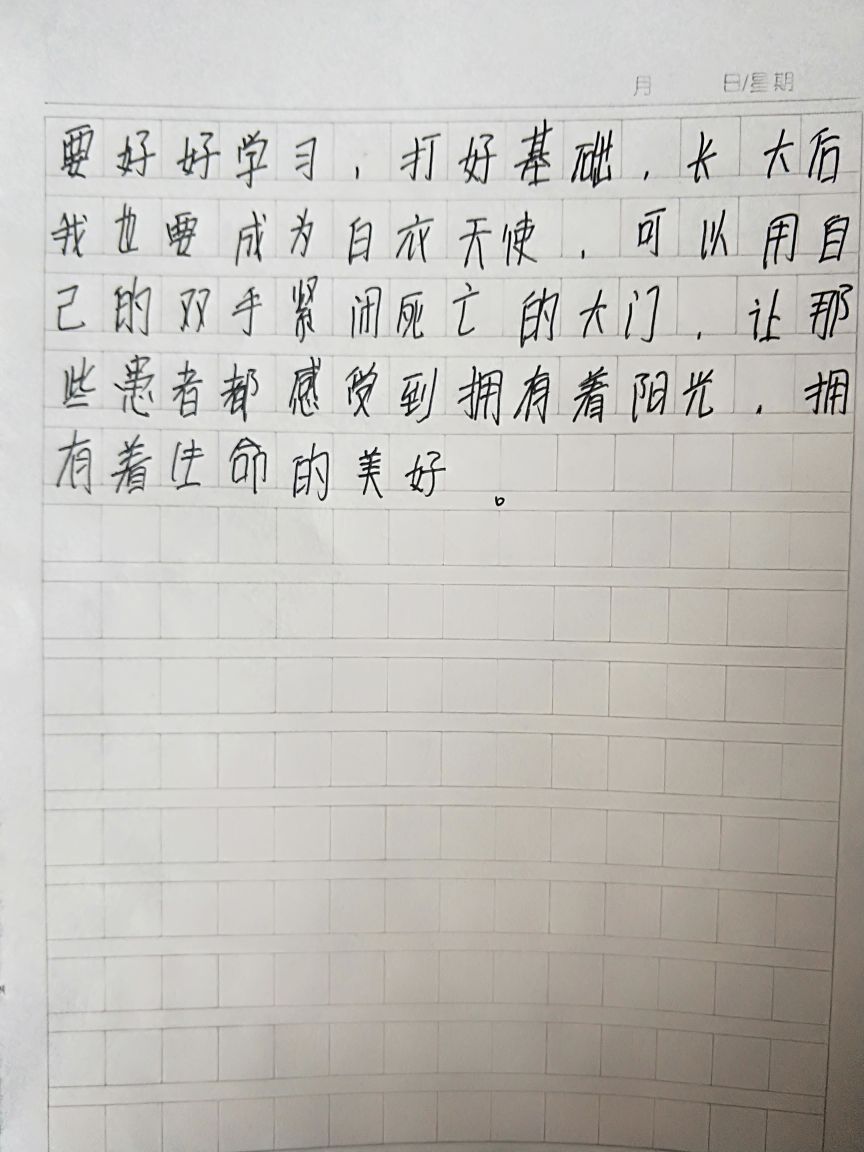 月 日/星期
要好好学习，打好基础，长大后
我也要成为白衣天使，可以用自
己的双手紧闭死亡的大门，让那
些患者都感受到拥有着阳光，拥
有着生命的美好。